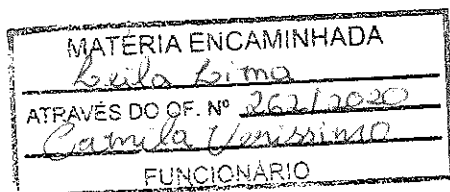 MATÉRIA ENCAMINHADA
Leila Lima
ATRAVÉS DO OF. Nº 262/2020
Camila Verissimo
FUNCIONÁRIO